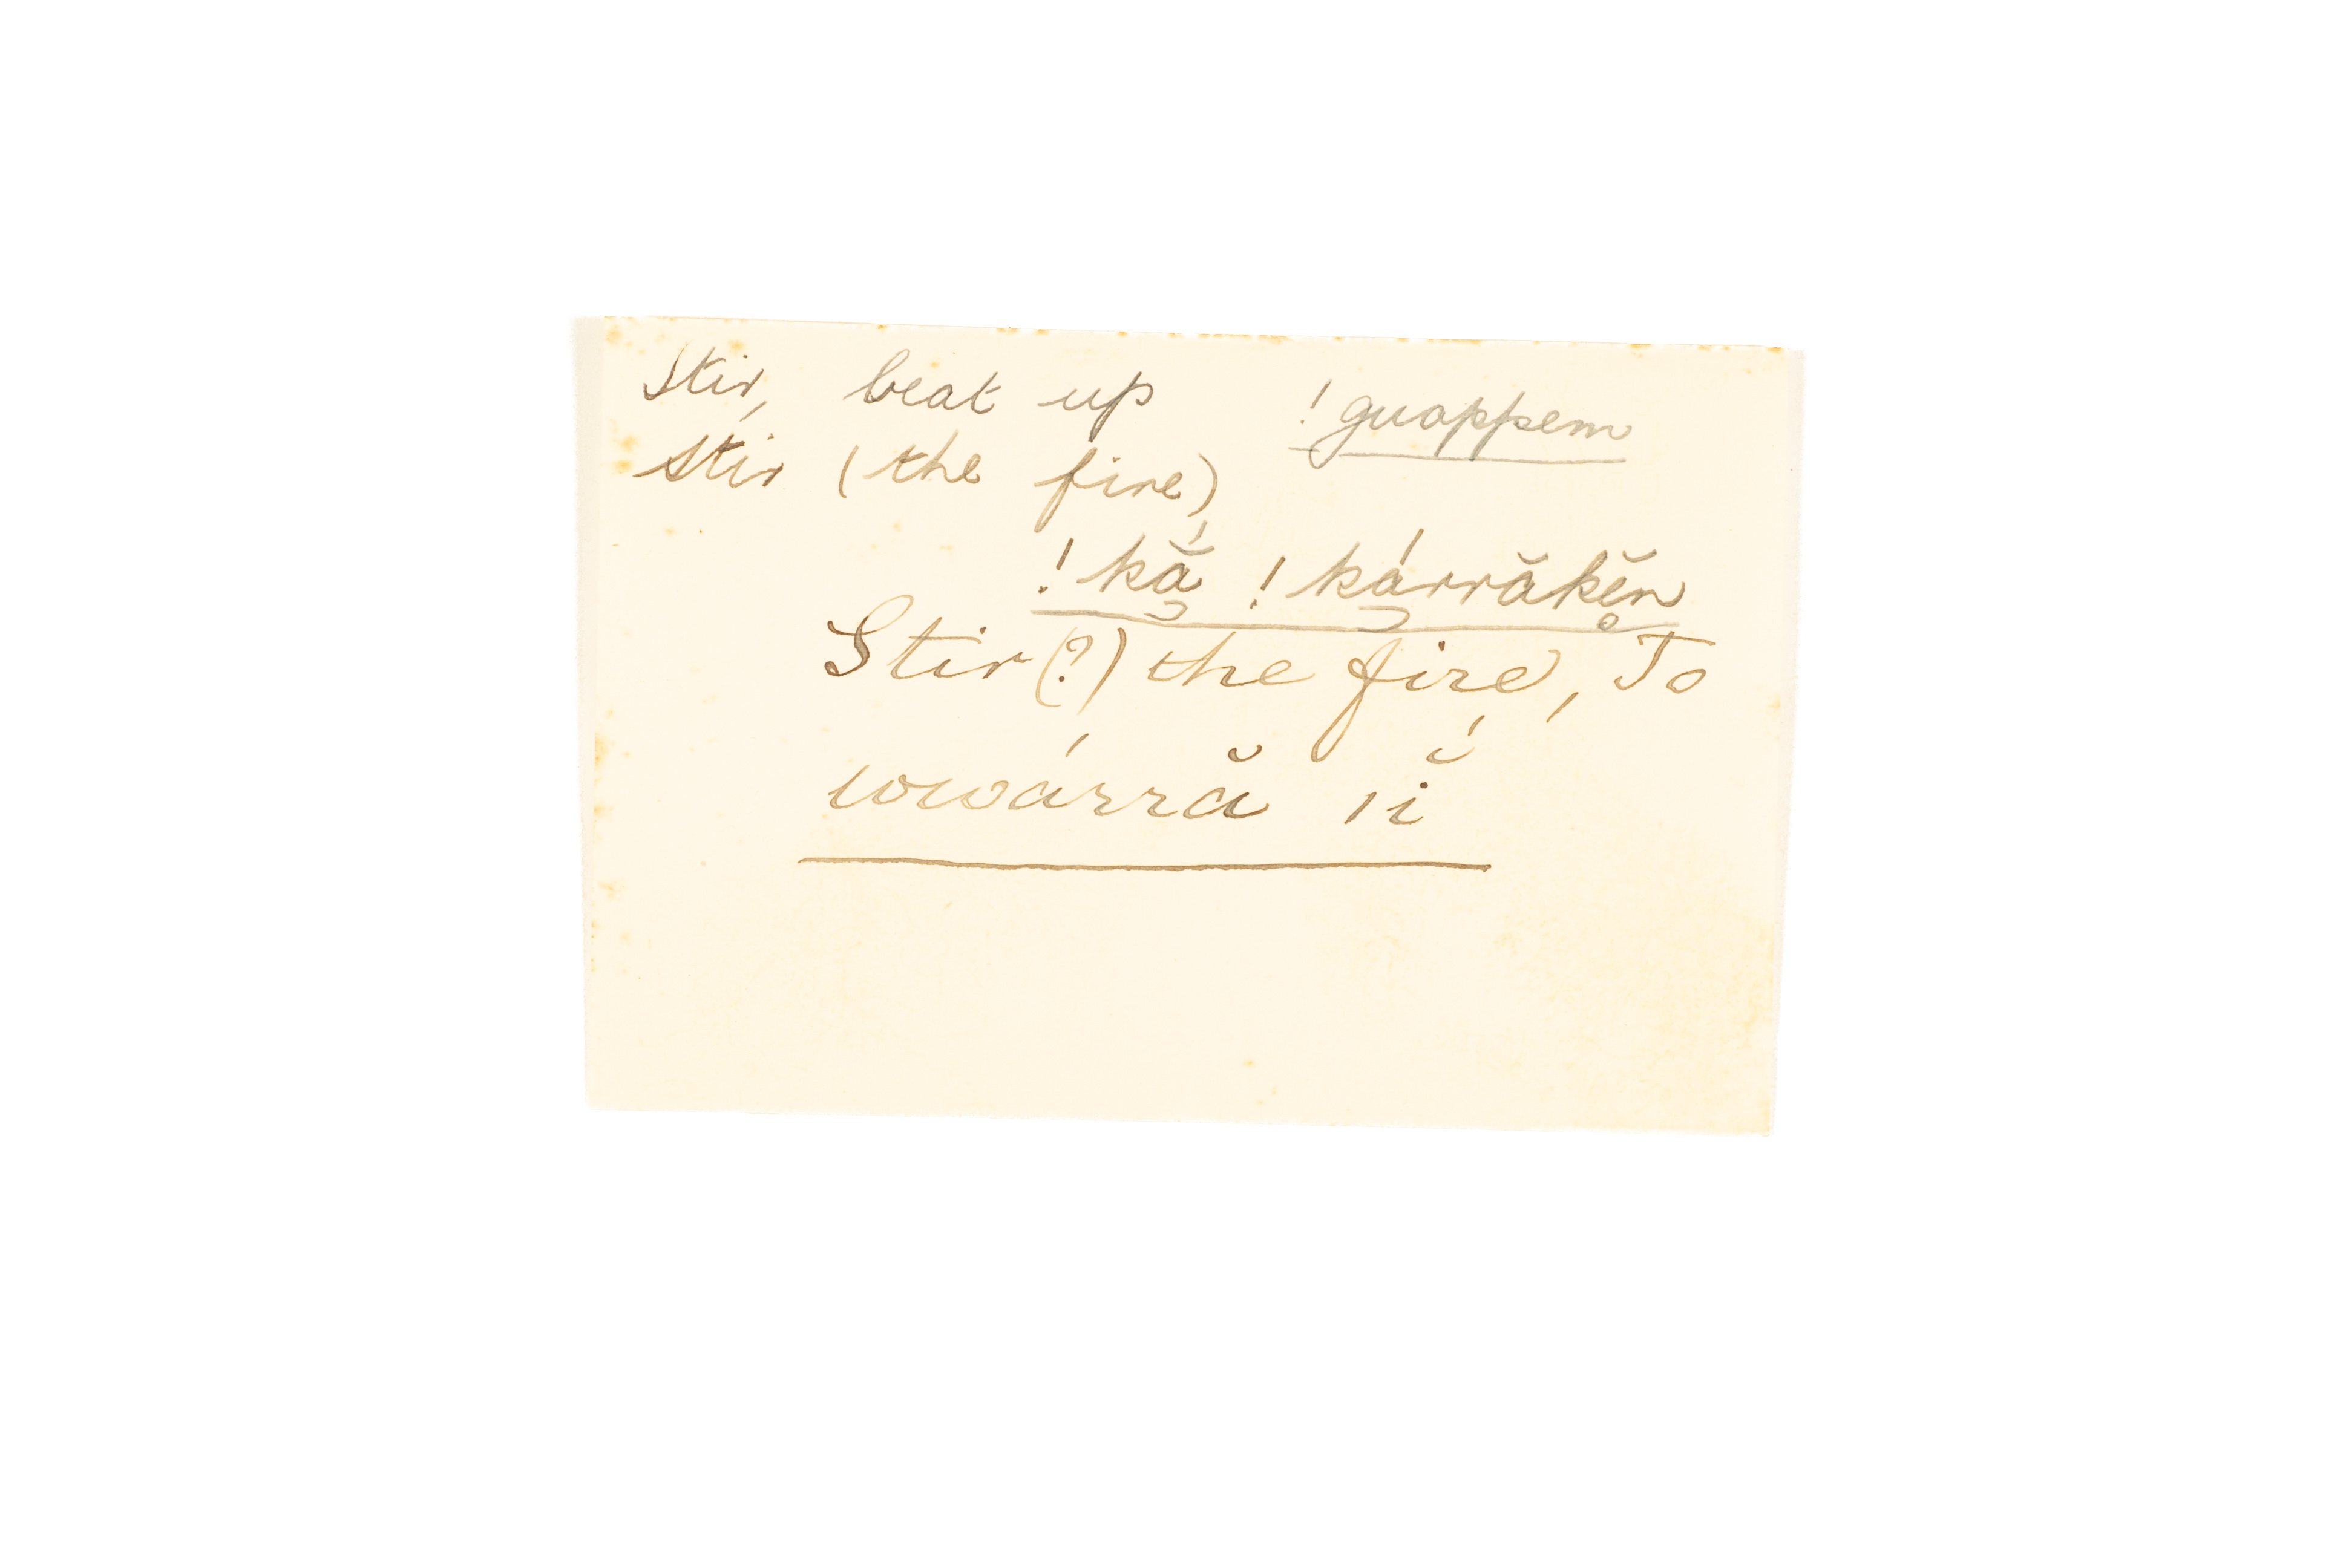 stir, beat up !guoppem
stir (the fire)
!kắ̱ !kárrăkĕ̥n
Stir (?) the fire, To
wwárră ıĭ́